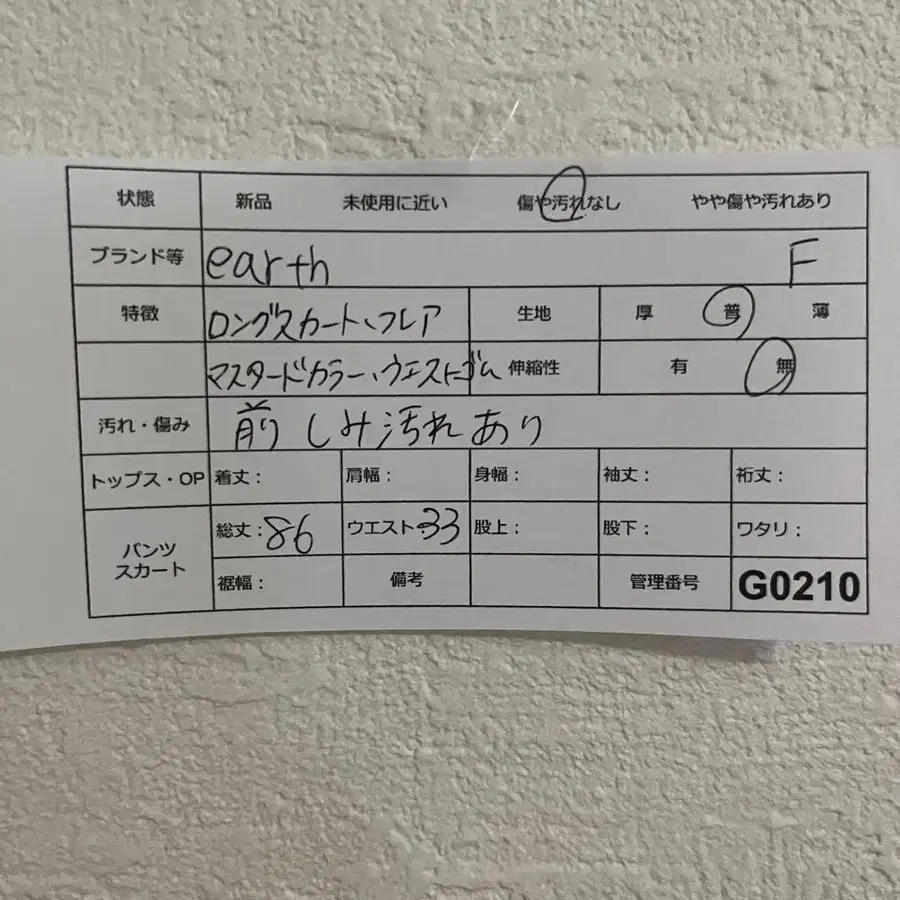 状態 新品 未使用に近い 傷や汚れなし やや傷や汚れあり
ブランド等 earth F
特徴 ロングスカート、フレア 生地 厚 普 薄
マスタードカラー、ウエストゴム 伸縮性 有 無
汚れ・傷み 前 しみ汚れあり
トップス・OP 着丈： 肩幅： 身幅： 袖丈： 裄丈：
パンツ スカート 総丈：86 ウエスト33 股上： 股下： ワタリ：
裾幅： 備考 管理番号 G0210